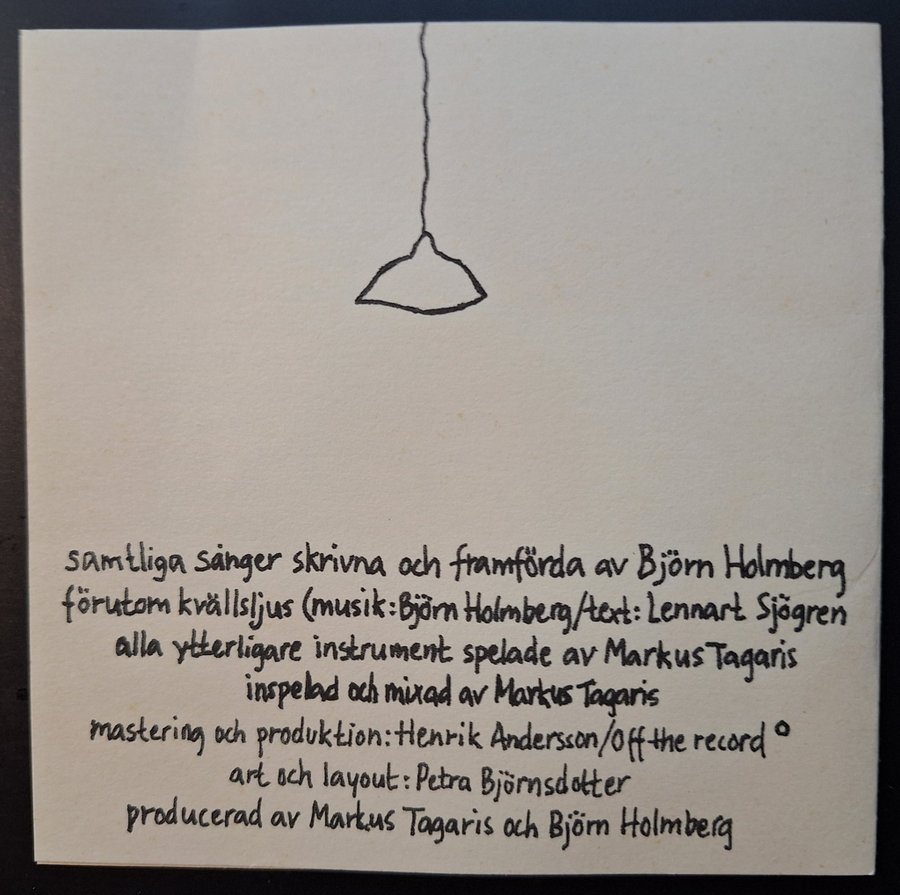 samtliga sånger skrivna och framförda av Björn Holmberg
förutom kvällsljus (musik: Björn Holmberg/text: Lennart Sjögren
alla ytterligare instrument spelade av Markus Tagaris
inspelad och mixad av Markus Tagaris
mastering och produktion: Henrik Andersson/Off the record °
art och layout: Petra Björnsdotter
producerad av Markus Tagaris och Björn Holmberg